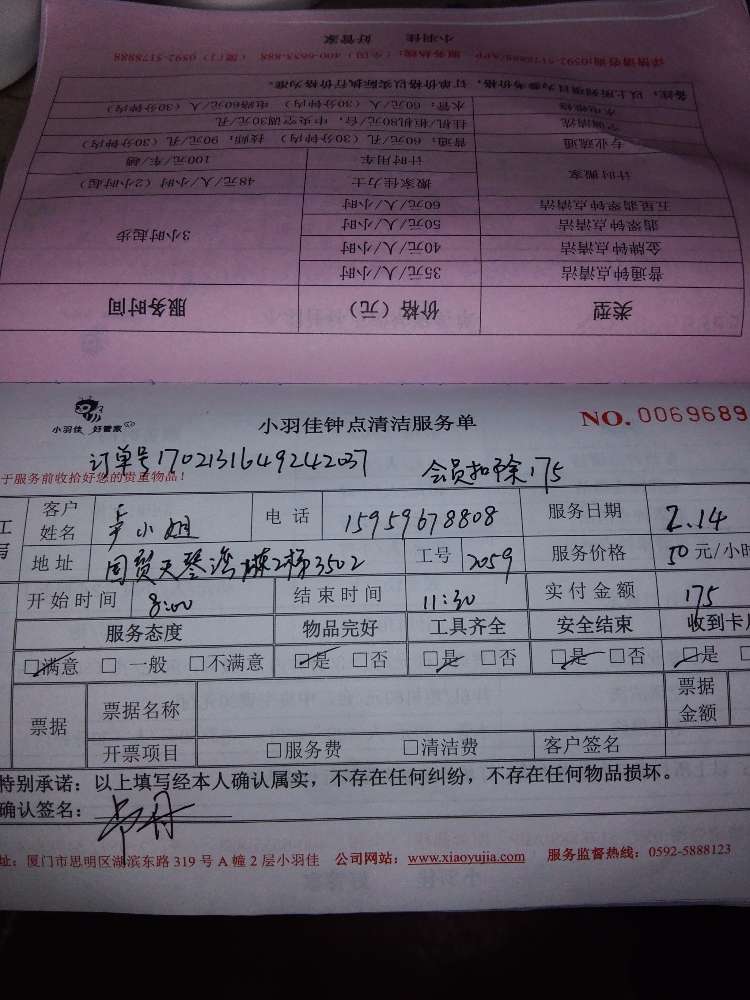 详情请咨询:0592-5178888/APP 服务热线：(全国) 400-6655-888 (厦门) 0592-5178888
备注：以上所列项目为参考价格，订单价格以实际执行价格为准。
类型 价格（元） 服务时间
普通钟点清洁 35元/人/小时 3小时起步
金牌钟点清洁 40元/人/小时
翡翠钟点清洁 50元/人/小时
五星翡翠钟点清洁 60元/人/小时
计时搬家 搬家佳力士 48元/人/小时（2小时起）
计时用车 100元/车/辆
专业疏通 普通：60元/孔（30分钟内） 技师：90元/孔（30分钟内）
空调清洗 挂机/柜机80元/台，中央空调30元/孔
水电维修 水管：60元/人（30分钟内） 电路60元/人（30分钟内）
小羽佳 好管家
小羽佳 好管家
小羽佳钟点清洁服务单
NO. 0069689
订单号1702131649242037
会员扣除:175
于服务前收拾好您的贵重物品！
客户姓名 卢小姐 电话 15959678808 服务日期 2.14
地址 国贸天琴湾 2梯3502 工号 2059 服务价格 50元/小时
开始时间 8:00 结束时间 11:30 实付金额 175
服务态度 物品完好 工具齐全 安全结束 收到卡
□满意 □一般 □不满意 □是 □否 □是 □否 □是 □否 □是
票据 票据名称 票据金额
开票项目 □服务费 □清洁费 客户签名
特别承诺：以上填写经本人确认属实，不存在任何纠纷，不存在任何物品损坏。
确认签名：
址：厦门市思明区湖滨东路 319 号 A 幢 2 层小羽佳 公司网站：www.xiaoyujia.com 服务监督热线：0592-5888123